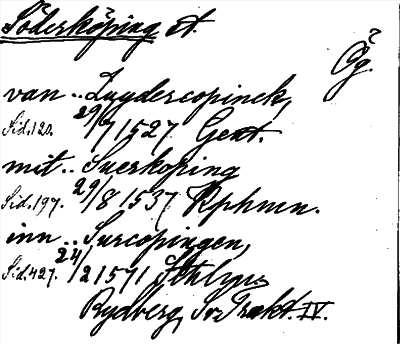 Söderköping st.
Ög.
van .. Zuydercopinck,
Sid. 120. 29/7 1527 Gent.
mit .. Suerkoping
Sid. 197. 29/8 1537 Kphmn.
inn .. Surcopingen,
Sid. 427. 24/2 1571 Sthlm,
Rydberg, Sv. Trakt. IV.